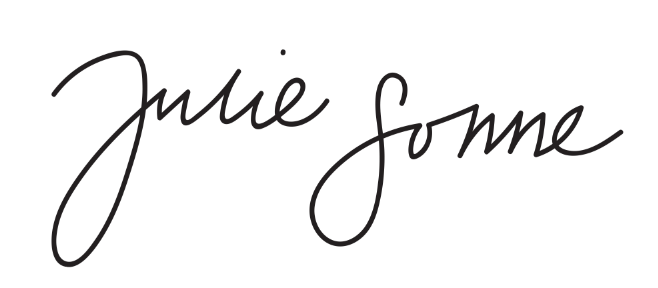 Julie Sonne